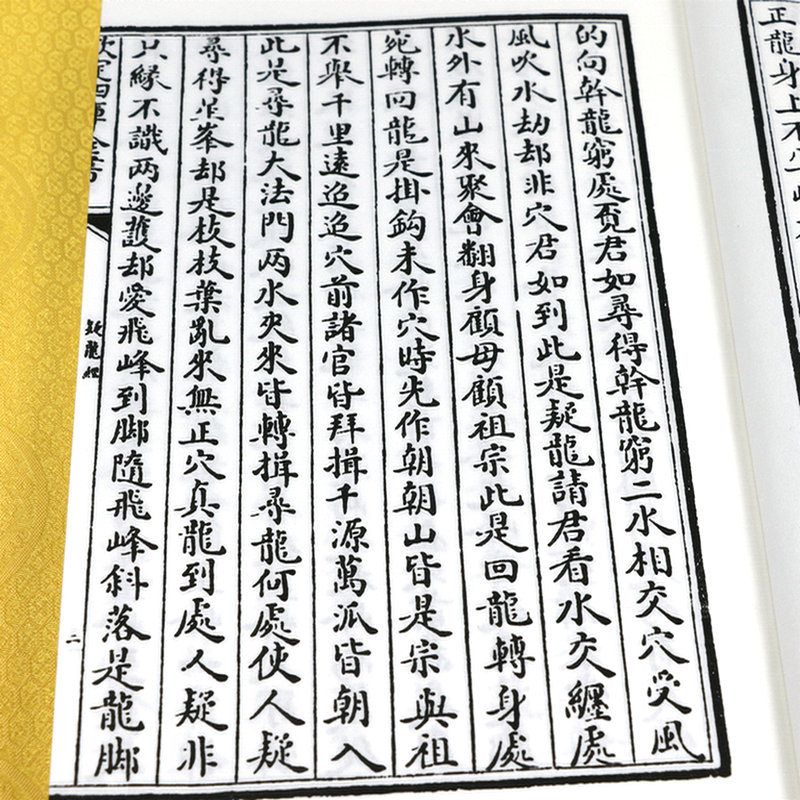 正龍身上不
的向幹龍窮處覓君如尋得幹龍窮二水相交穴受風
風吹水劫却非穴君如到此是疑龍請君看水交纏處
水外有山來聚會翻身顧母顧祖宗此是回龍轉身處
宛轉回龍是掛鈎未作穴時先作朝朝山皆是宗與祖
不舉千里遠迢迢穴前諸官皆拜揖千源萬派皆朝入
此是尋龍大法門两水夾來皆轉揖尋龍何處使人疑
尋得星峯却是枝枝葉亂來無正穴真龍到處人疑非
只緣不識两邊護却愛飛峰到脚隨飛峰斜落是龍脚
欽定四庫全書
疑龍經
二